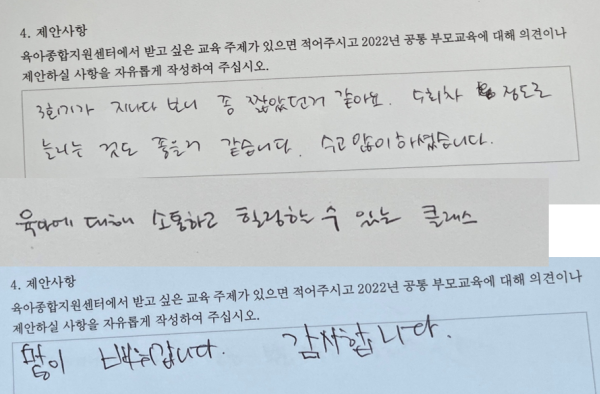 4. 제안사항
육아종합지원센터에서 받고 싶은 교육 주제가 있으면 적어주시고 2022년 공통 부모교육에 대해 의견이나
제안하실 사항을 자유롭게 작성하여 주십시오.
3회기가 지나다 보니 좀 짧았던거 같아요. 정도로
늘리는 것도 좋을거 같습니다. 수고 많이 하셨습니다.
육아에 대해 소통하고 힐링하는 수 있는 클래스
4. 제안사항
육아종합지원센터에서 받고 싶은 교육 주제가 있으면 적어주시고 2022년 공통 부모교육에 대해 의견이나
제안하실 사항을 자유롭게 작성하여 주십시오.
많이 배워갑니다. 감사합니다.